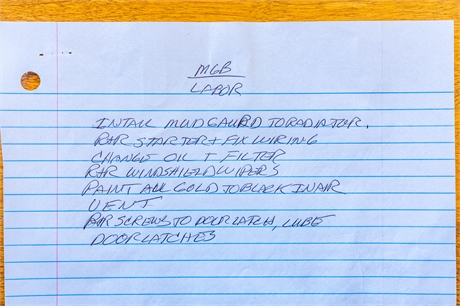 MGB
LABOR
INTALL MUDGAURD TO RADIATOR.
R+R STARTER + FIX WIRING
CHANGE OIL + FILTER
R+R WINDSHIELD WIPERS
PAINT ALL GOLD TO BLACK IN AIR
VENT
R+R SCREWS TO DOOR LATCH, LUBE
DOOR LATCHES